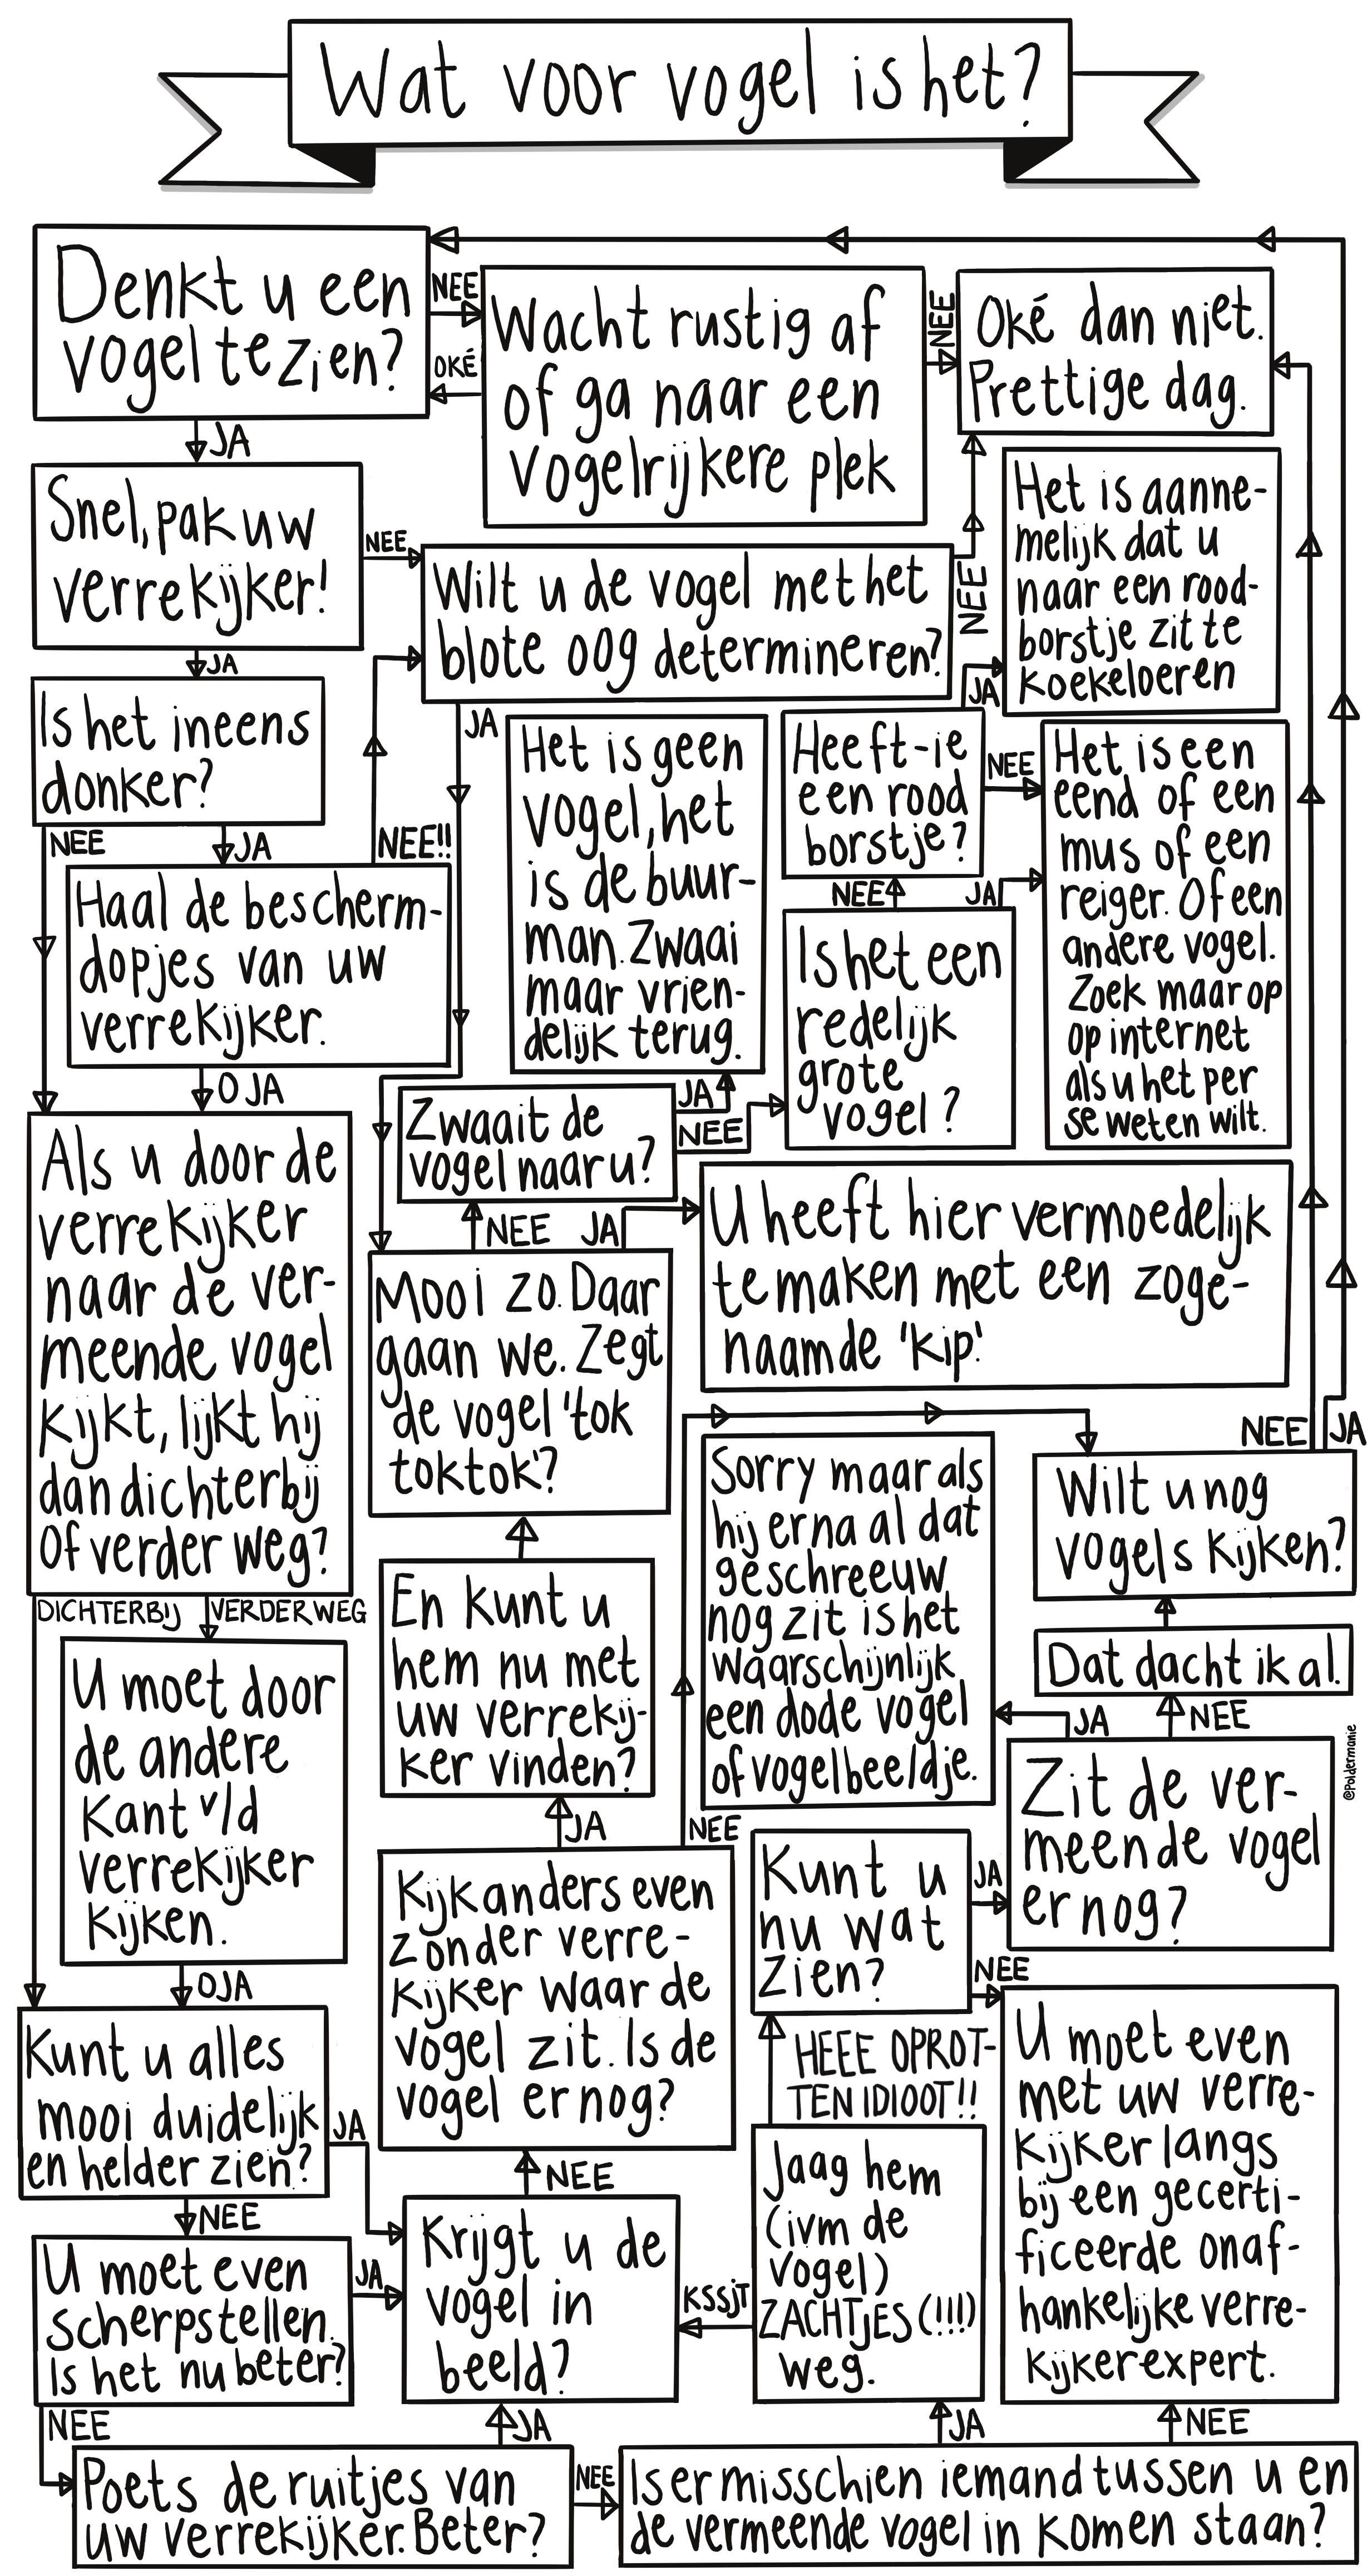 Wat voor vogel is het?
Denkt u een
vogel te zien?
NEE
OKÉ
JA
Wacht rustig af
of ga naar een
vogelrijkere plek
NEE
Oké dan niet.
Prettige dag.
Snel, pak uw
verrekijker!
NEE
JA
Wilt u de vogel met het
blote oog determineren?
NEE
JA
Het is aanne-
melijk dat u
naar een rood-
borstje zit te
koekeloeren
Is het ineens
donker?
NEE
JA
Haal de bescherm-
dopjes van uw
verrekijker.
NEE!!
O JA
Het is geen
vogel, het
is de buur-
man. Zwaai
maar vrien-
delijk terug.
Heeft-ie
een rood
borstje?
JA
NEE
Het is een
eend of een
mus of een
reiger. Of een
andere vogel.
Zoek maar op
op internet
als u het per
se weten wilt.
NEE
JA
Is het een
redelijk
grote
vogel?
Zwaait de
vogel naar u?
JA
NEE
Als u door de
verrekijker
naar de ver-
meende vogel
kijkt, lijkt hij
dan dichterbij
of verder weg?
DICHTERBIJ
VERDER WEG
NEE
JA
Mooi zo. Daar
gaan we. Zegt
de vogel 'tok
toktok'?
U heeft hier vermoedelijk
te maken met een zoge-
naamde 'kip'.
NEE
JA
Wilt u nog
vogels kijken?
Sorry maar als
hij erna al dat
geschreeuw
nog zit is het
waarschijnlijk
een dode vogel
of vogelbeeldje.
Dat dacht ik al.
JA
NEE
Zit de ver-
meende vogel
er nog?
@Poldermanie
U moet door
de andere
kant v/d
verrekijker
kijken.
OJA
En kunt u
hem nu met
uw verrekij-
ker vinden?
JA
NEE
Kijk anders even
zonder verre-
kijker waar de
vogel zit. Is de
vogel er nog?
NEE
Kunt u
nu wat
zien?
JA
NEE
HEEE OPROT-
TEN IDIOOT!!
Kunt u alles
mooi duidelijk
en helder zien?
JA
NEE
U moet even
scherpstellen.
Is het nu beter?
JA
NEE
Krijgt u de
vogel in
beeld?
KSSJT
Jaag hem
(ivm de
vogel)
ZACHTJES (!!!)
weg.
U moet even
met uw verre-
kijker langs
bij een gecerti-
ficeerde onaf-
hankelijke verre-
kijkerexpert.
JA
JA
NEE
Poets de ruitjes van
uw verrekijker. Beter?
NEE
Is er misschien iemand tussen u en
de vermeende vogel in komen staan?